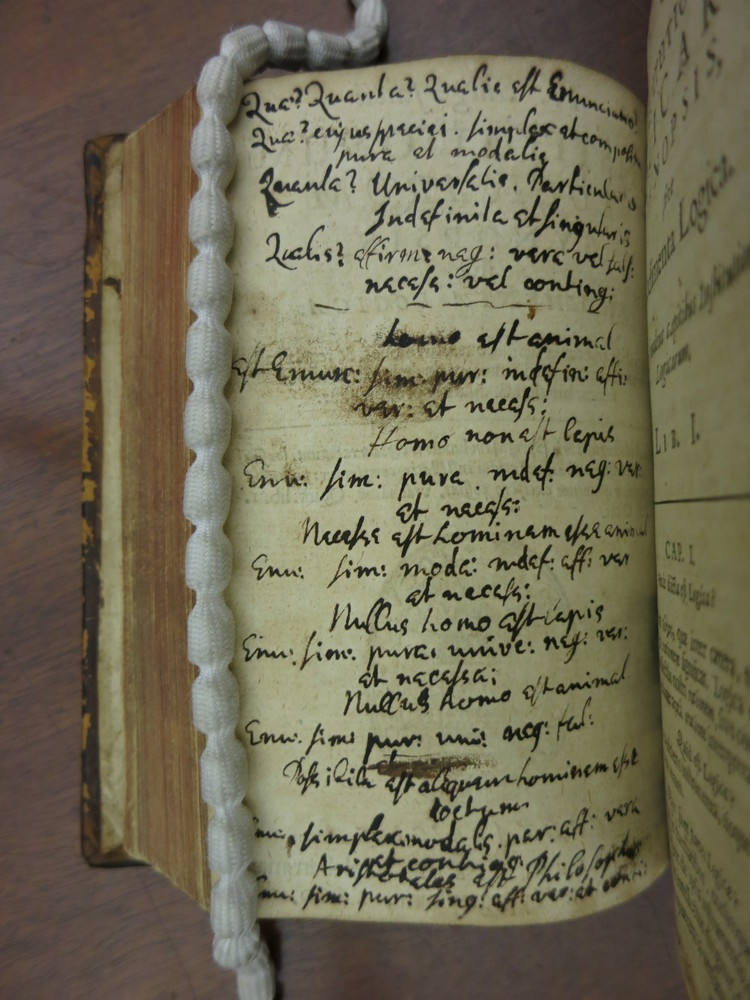 Quae? Quanta? Qualis est Enunciatio
Quae? cujus speciei. simplex et composita
pura et modalis
Quanta? Universalis. Particularis
Indefinita et singularis
Qualis? affirm: neg: vera vel fals:
necess: vel conting:
homo est animal
est Enunc: sim: pur: indefin: affir:
ver: et necess:
Homo non est lapis
Enu: sim: pura indef: neg: ver:
et necess:
Necesse est hominem esse animal
Enu: sim: moda: indef: aff: ver
et necess:
Nullus homo est lapis
Enu: sim: pura: unive: neg: ver:
et necessa:
Nullus homo est animal
Enu: sim: pur: uni: neg: fal:
Possibile est aliquem hominem esse
doctum
Enu: simplex modalis par: aff: vera
et conting:
Aristoteles est Philosophus
Enu: sim: pur: sing: aff: ver: et
Logica
LIB. I.
CAP. I.